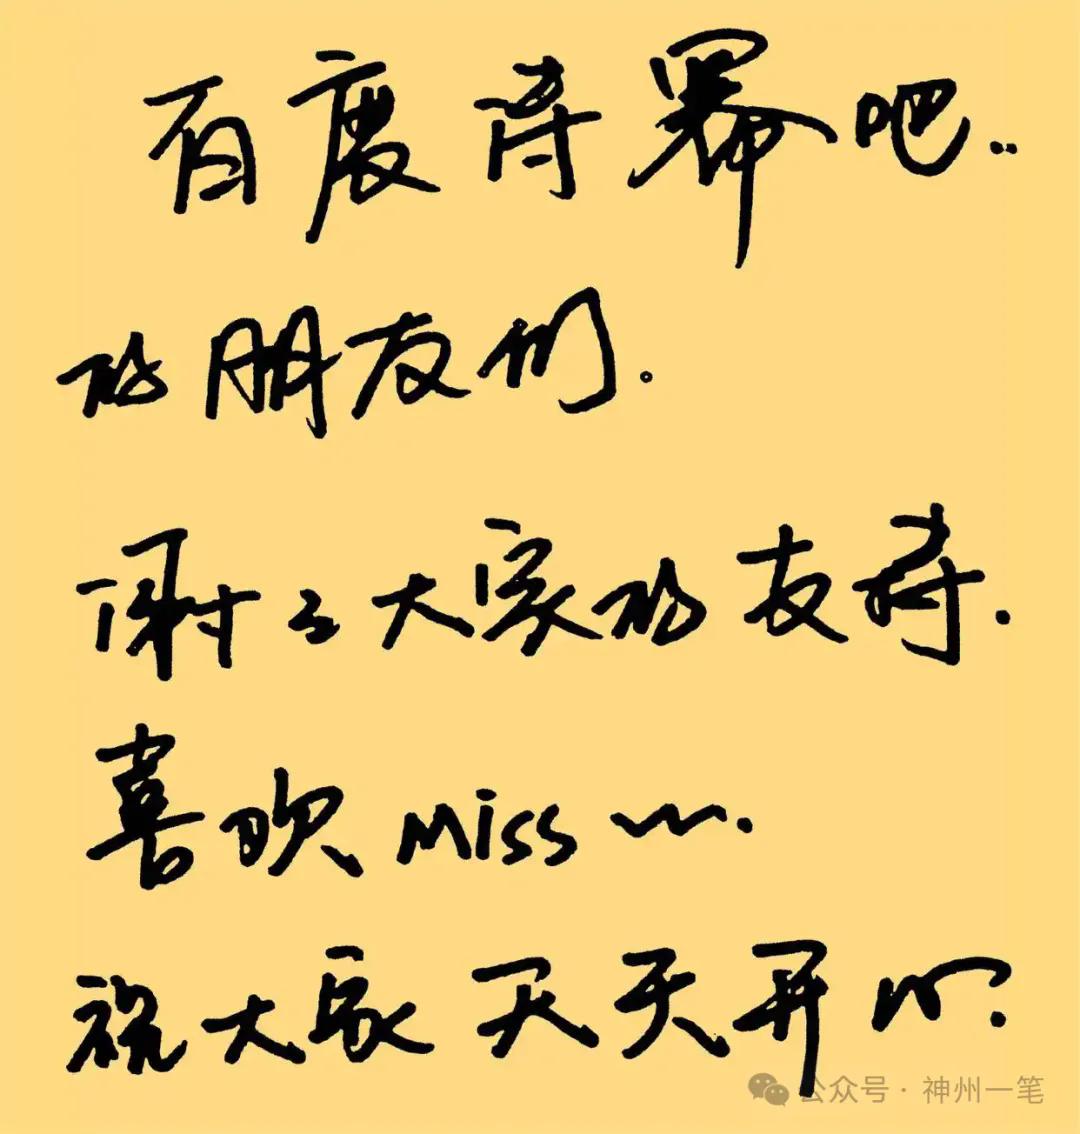 百度诗幂吧..
的朋友们。
谢谢大家的支持.
喜欢Miss ~.
祝大家天天开心.
公众号·神州一笔